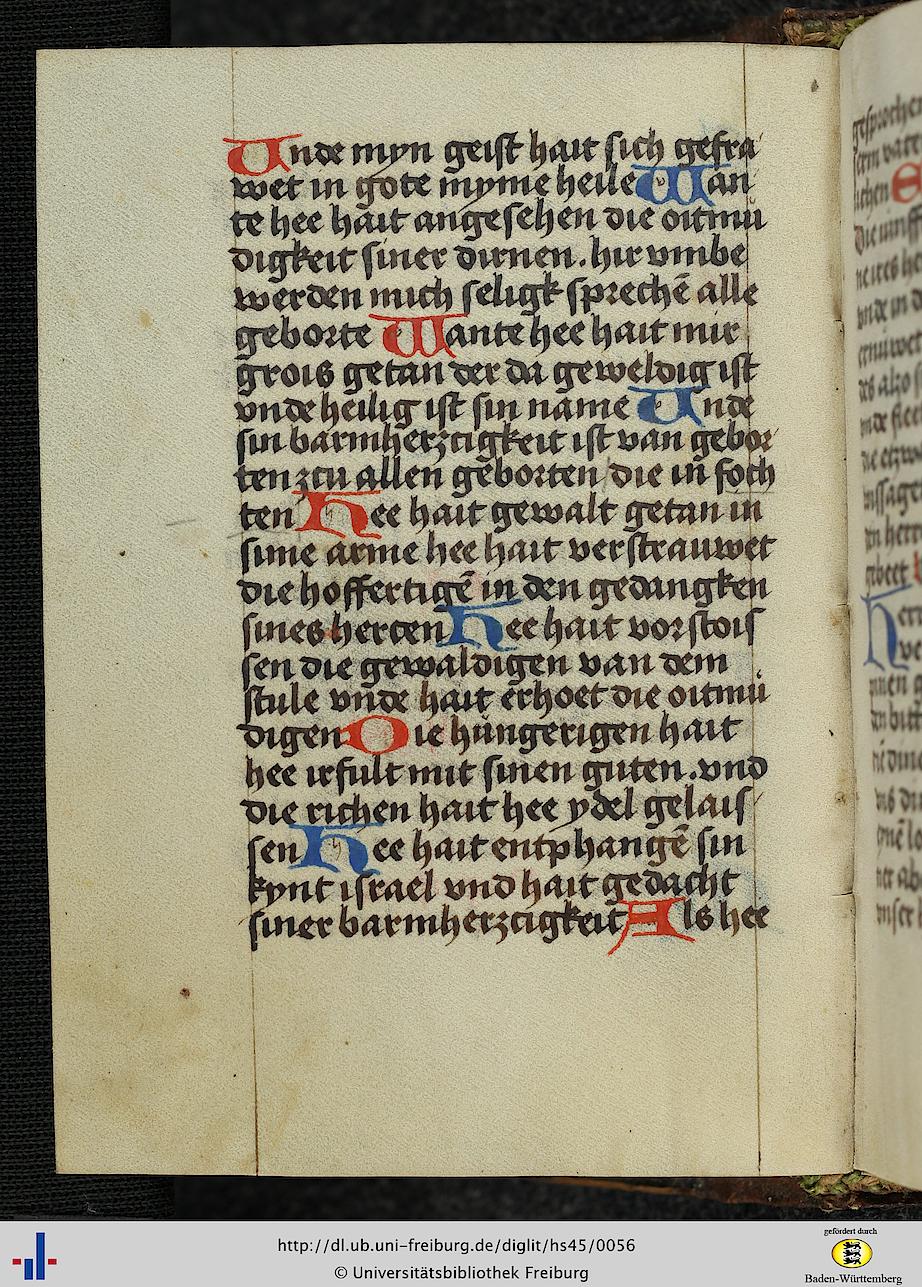 Unde myn geist hait sich gefra
wet in gote myme heile Wan
te hee hait angesehen die oitmu
digkeit siner dirnen. hir vmbe
werden mich seligk sprechē alle
geborte Wante hee hait mir
grois getan der da geweldig ist
vnde heilig ist sin name Unde
sin barmherzcigkeit ist van gebor
ten zcu allen geborten / die in foch
ten Hee hait gewalt getan in
sime arme hee hait verstrauwet
die hoffertigē in den gedangken
sines hercen Hee hait vorstois
sen die gewaldigen van dem
stule vnde hait erhoet die oitmu
digen Die hungerigen hait
hee irfult mit sinen guten. vnd
die richen hait hee ydel gelais
sen Hee hait entphangē sin
kynt israel vnd hait gedacht
siner barmherzcigkeit Als hee
http://dl.ub.uni-freiburg.de/diglit/hs45/0056
© Universitätsbibliothek Freiburg
gefördert durch
Baden-Württemberg